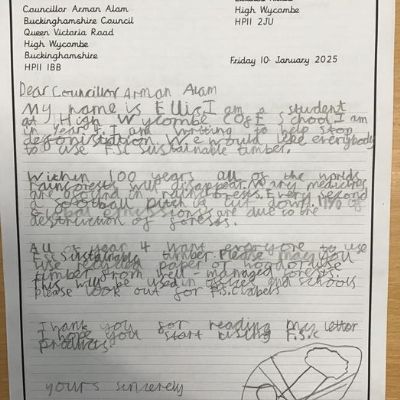 Councillor Arman Alam
Buckinghamshire Council
Queen Victoria Road
High Wycombe
Buckinghamshire
HP11 1BB
High Wycombe
HP11 2JU
Friday 10 January 2025
Dear Councillor Arman Alam
My name is Ellis I am a student
at High Wycombe CofE School I am
in Year 4. I am writing to help stop
We would like everybody
to use FSC sustainable timber.
Within 100 years all of the worlds
rainforests will disappear. Many medicines
are found in rainforests. Every second
a football pitch is cut down. 11% of
global emissions are due to the
destruction of forests.
All of year 4 want everyone to use
FSC sustainable timber. Please may you
use recycled paper or
timber from well-managed forests.
this will be used in offices and schools
please look out for FSC labels
Thank you for reading my letter
I hope you start using FSC
products
yours sincerely